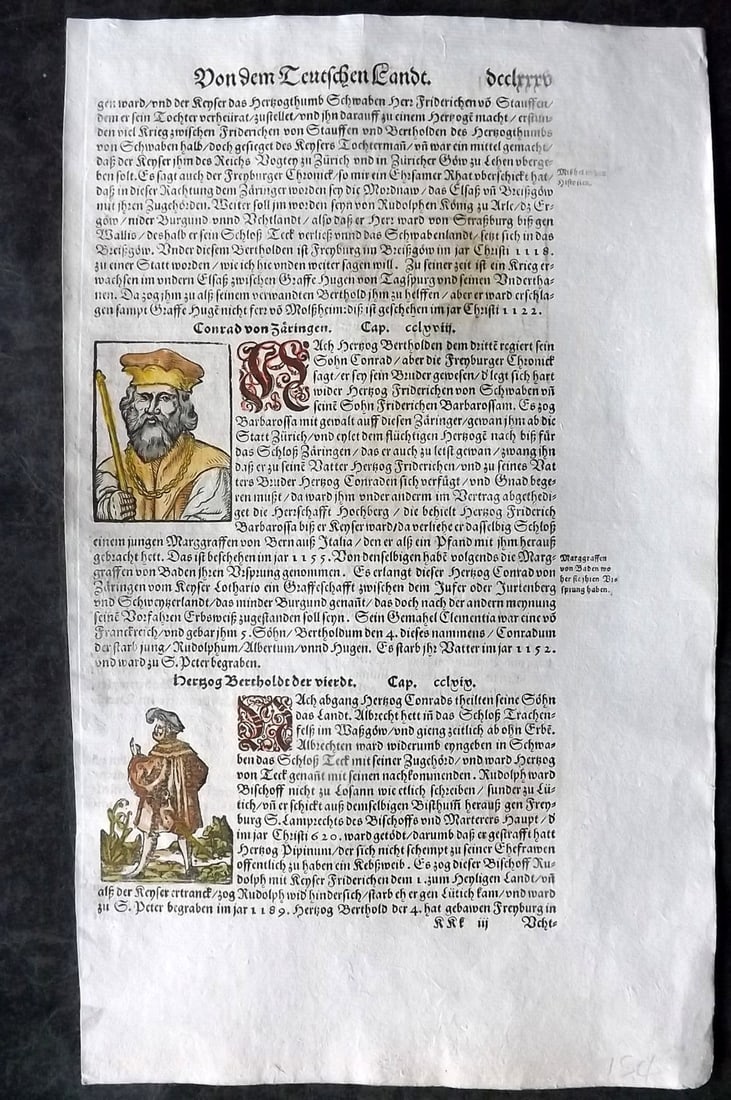 Von dem Teutschen Landt. dcclxxxv
gen ward/vnd der Keyser das Hertzogthumb Schwaben Herr Friderichen võ Stauffen/
dem er sein Tochter verheürat/zustellet/vnd jhn darauff zu einem Hertzogẽ macht/erstun-
den viel Krieg zwischen Friderichen von Stauffen vnd Bertholden des Hertzogthumbs
von Schwaben halb/doch gesieget des Keysers Tochtermañ/vñ war ein mittel gemacht/
daß der Keyser jhm des Reichs Vogtey zu Zürich vnd in Züricher Göw zu Lehen vberge-
ben solt. Es sagt auch der Freyburger Chronick/so mir ein Ehrsamer Rhat vberschickt hat/
daß in dieser Rachtung dem Zäringer worden sey die Mordnaw/das Elsaß vñ Breißgöw
mit jhren Zugehörden. Weiter soll jm worden seyn von Rudolphen König zu Arle/dz Er-
göw/nider Burgund vnnd Vchtlandt/also daß er Herr ward von Straßburg biß gen
Wallis/deshalb er sein Schloß Teck verließ vnnd das Schwabenland/setzt sich in das
Breißgöw. Vnder diesem Bertholden ist Freyburg im Breißgöw im jar Christi 1118.
zu einer Statt worden/wie ich hie vnden weiter sagen will. Zu seiner zeit ist ein Krieg er-
wachsen im vndern Elsaß zwischen Graffe Hugen von Tagspurg vnd seinen Vndertha-
nen. Da zog jhm zu alß seinem verwandten Berthold jhm zu helffen/aber er ward erschla-
gen sampt Graffe Hugẽ nicht ferr võ Molßheim: diß ist geschehen im jar Christi 1122.
Historien.
Conrad von Zäringen. Cap. cclxviij.
NAch Hertzog Bertholden dem drittẽ regiert sein
Sohn Conrad/aber die Freyburger Chronick
sagt/er sey sein Bruder gewesen/d' legt sich hart
wider Hertzog Friderichen von Schwaben vñ
seinẽ Sohn Friderichen Barbarossam. Es zog
Barbarossa mit gewalt auff diesen Zäringer/gewan jhm ab die
Statt Zürich/vnd eylet dem flüchtigen Hertzogẽ nach biß für
das Schloß Zäringen/das er auch zu letst gewan/zwang jhn
daß er zu seinẽ Vatter Hertzog Friderichen/vnd zu seines Vat
ters Bruder Hertzog Conraden sich verfügt/vnd Gnad bege-
ren mußt/da ward jhm vnder anderm im Vertrag abgethedi-
get die Herrschafft Hochberg/die behielt Hertzog Friderich
Barbarossa biß er Keyser ward/da verliehe er dasselbig Schloß
einem jungen Marggraffen von Bern auß Italia/den er alß ein Pfand mit jhm herauß
gebracht hett. Das ist beschehen im jar 1155. Von denselbigen habẽ volgends die Marg-
graffen von Baden jhren Vrsprung genommen. Es erlangt dieser Hertzog Conrad von
Zäringen vom Keyser Lothario ein Graffeschafft zwischen dem Jufer oder Jurtenberg
vnd Schweytzerlandt/das minder Burgund genañt/das doch nach der andern meynung
seinẽ Vorfahren Erbsweiß zugestanden soll seyn. Sein Gemahel Clementia war eine võ
Franckreich/vnd gebar jhm 5. Söhn/Bertholdum den 4. dieses nammens/Conradum
der starb jung/Rudolphum/Albertum/vnnd Hugen. Es starb jhr Vatter im jar 1152.
vnd ward zu S. Peter begraben.
Marggraffen
von Baden wo
her sie jhren Vr-
sprung haben.
Hertzog Bertholdt der vierdt. Cap. cclxix.
NAch abgang Hertzog Conrads theilten seine Söhn
das Landt. Albrecht hett iñ das Schloß Trachen-
felß im Waßgöw/vnd gieng zeitlich ab ohn Erbẽ.
Albrechten ward widerumb eyngeben in Schwa-
ben das Schloß Teck mit seiner Zugehörd/vnd ward Hertzog
von Teck genañt mit seinen nachkommenden. Rudolph ward
Bischoff nicht zu Losann wie etlich schreiben/sunder zu Lü-
tich/vñ er schickt auß demselbigen Bisthum̃ herauß gen Frey-
burg S. Lamprechts des Bischoffs vnd Marterers Haupt/d'
im jar Christi 620. ward getödt/darumb daß er gestrafft hatt
Hertzog Pipinum/der sich nicht schempt zu seiner Ehefrawen
offentlich zu haben ein Kebßweib. Es zog dieser Bischoff Ru-
dolph mit Keyser Friderichen dem 1. zum Heyligen Landt/vñ
alß der Keyser ertranck/zog Rudolph wid' hindersich/starb eh er gen Lütich kam/vnd ward
zu S. Peter begraben im jar 1189. Hertzog Berthold der 4. hat gebawen Freyburg in
KKk iij Vcht-